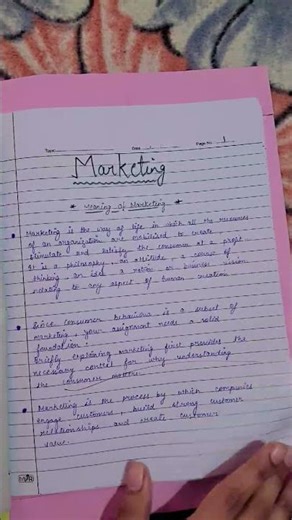 Date
Page No. 1
Marketing
* Meaning of Marketing *
Marketing is the way of life in which all the resources
of an organization are mobilized to create
stimulate and satisfy the consumer at a profit
It is a philosophy, an attitude, a course of
thinking an idea a notion or business vision
relating to any aspect of human creation
Since consumer behaviour is a subset of
marketing, your assignment needs a solid
foundation.
Briefly explaining marketing first provides the
necessary context for why understanding
the consumer matters.
Marketing is the process by which companies
engage customers, build strong customer
relationships and create customer
value.